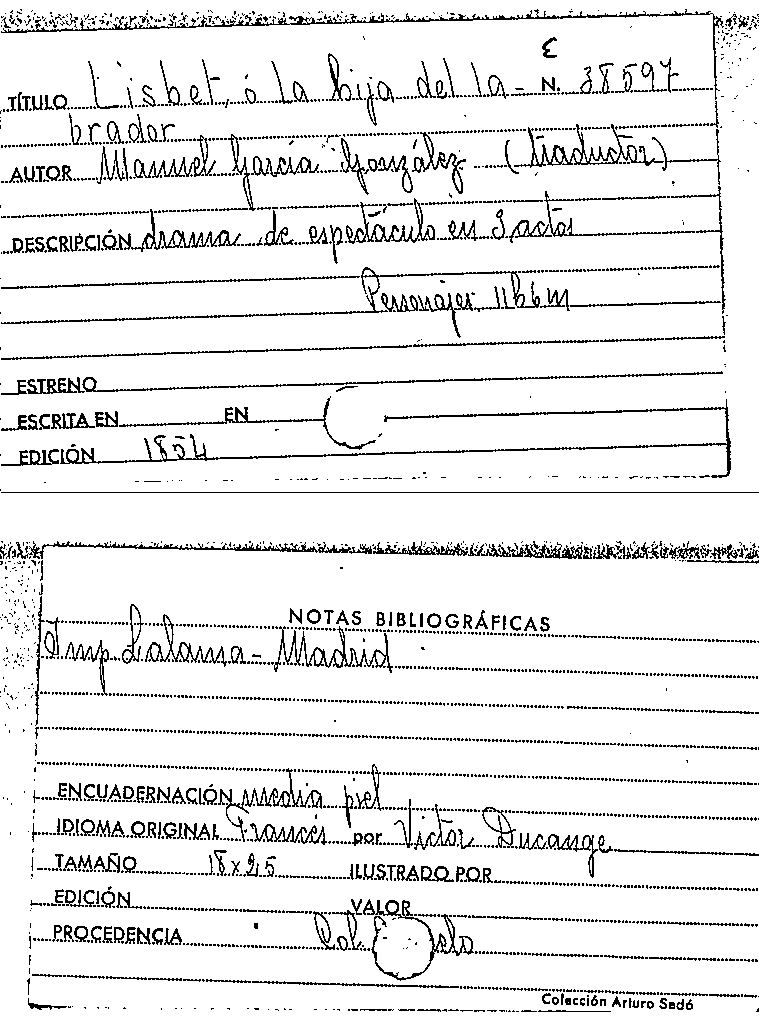 ε
TÍTULO Lisbet, ó la hija del la- N. 38597
brador
AUTOR Manuel García González (traductor)
DESCRIPCIÓN drama de espectáculo en 3 actos
Personajes 11h 6m
ESTRENO
ESCRITA EN EN
EDICIÓN 1854
NOTAS BIBLIOGRÁFICAS
Imp. Lalama - Madrid
ENCUADERNACIÓN media piel
IDIOMA ORIGINAL Francés por Victor Ducange
TAMAÑO 18 x 25 ILUSTRADO POR
EDICIÓN VALOR
PROCEDENCIA Col.
Colección Arturo Sedó